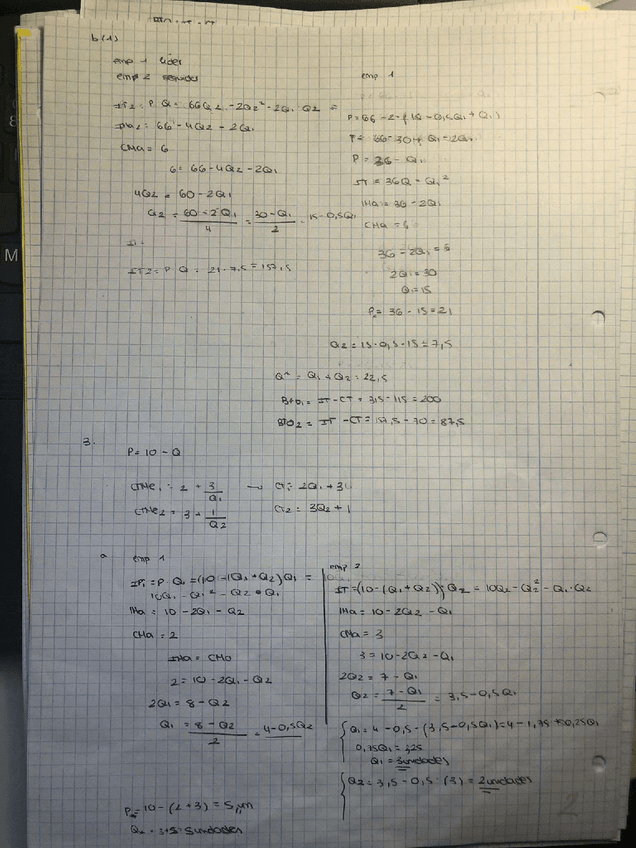 b(1)
emp 1 líder
emp 2 seguidor
IT2 = P · Q = 66Q2 - 2Q2² - 2Q1 · Q2 =
IMa2 = 66 - 4Q2 - 2Q1
CMa = 6
6 = 66 - 4Q2 - 2Q1
4Q2 = 60 - 2Q1
Q2 = 60 - 2Q1 / 4 = 30 - Q1 / 2 = 15 - 0,5Q1
IT2 = P · Q = 21 · 7,5 = 157,5
emp 1
P = 66 - 2 · (15 - 0,5Q1 + Q1)
P = 66 - 30 + Q1 - 2Q1
P = 36 - Q1
IT = 36Q - Q1²
IMa = 36 - 2Q1
CMa = 6
36 - 2Q1 = 6
2Q1 = 30
Q1 = 15
P = 36 - 15 = 21
Q2 = 15 - 0,5 · 15 = 7,5
Q* = Q1 + Q2 = 22,5
Bto1 = IT - CT = 315 - 115 = 200
BTO2 = IT - CT = 157,5 - 70 = 87,5
3.
P = 10 - Q
CTMe1 = 2 + 3/Q1 → CT1 = 2Q1 + 3
CTMe2 = 3 + 1/Q2 CT2 = 3Q2 + 1
a emp 1
IT1 = P · Q1 = (10 - (Q1 + Q2)) Q1 =
10Q1 - Q1² - Q2 · Q1
IMa = 10 - 2Q1 - Q2
CMa = 2
IMa = CMa
2 = 10 - 2Q1 - Q2
2Q1 = 8 - Q2
Q1 = 8 - Q2 / 2 = 4 - 0,5Q2
emp 2
IT = (10 - (Q1 + Q2)) · Q2 = 10Q2 - Q2² - Q1 · Q2
IMa = 10 - 2Q2 - Q1
CMa = 3
3 = 10 - 2Q2 - Q1
2Q2 = 7 - Q1
Q2 = 7 - Q1 / 2 = 3,5 - 0,5Q1
Q1 = 4 - 0,5 · (3,5 - 0,5Q1) = 4 - 1,75 + 0,25Q1
0,75Q1 = 2,25
Q1 = 3 unidades
Q2 = 3,5 - 0,5 · (3) = 2 unidades
P = 10 - (2 + 3) = 5 um
5 unidades